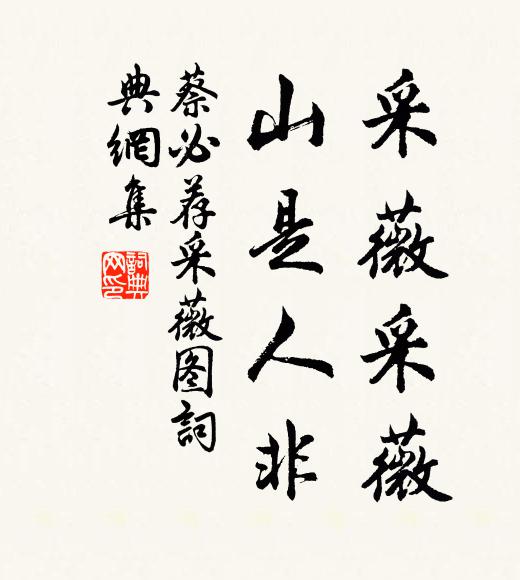 采薇采薇
山是人非
蔡必荐采薇图詞
典網集
詞典
网印